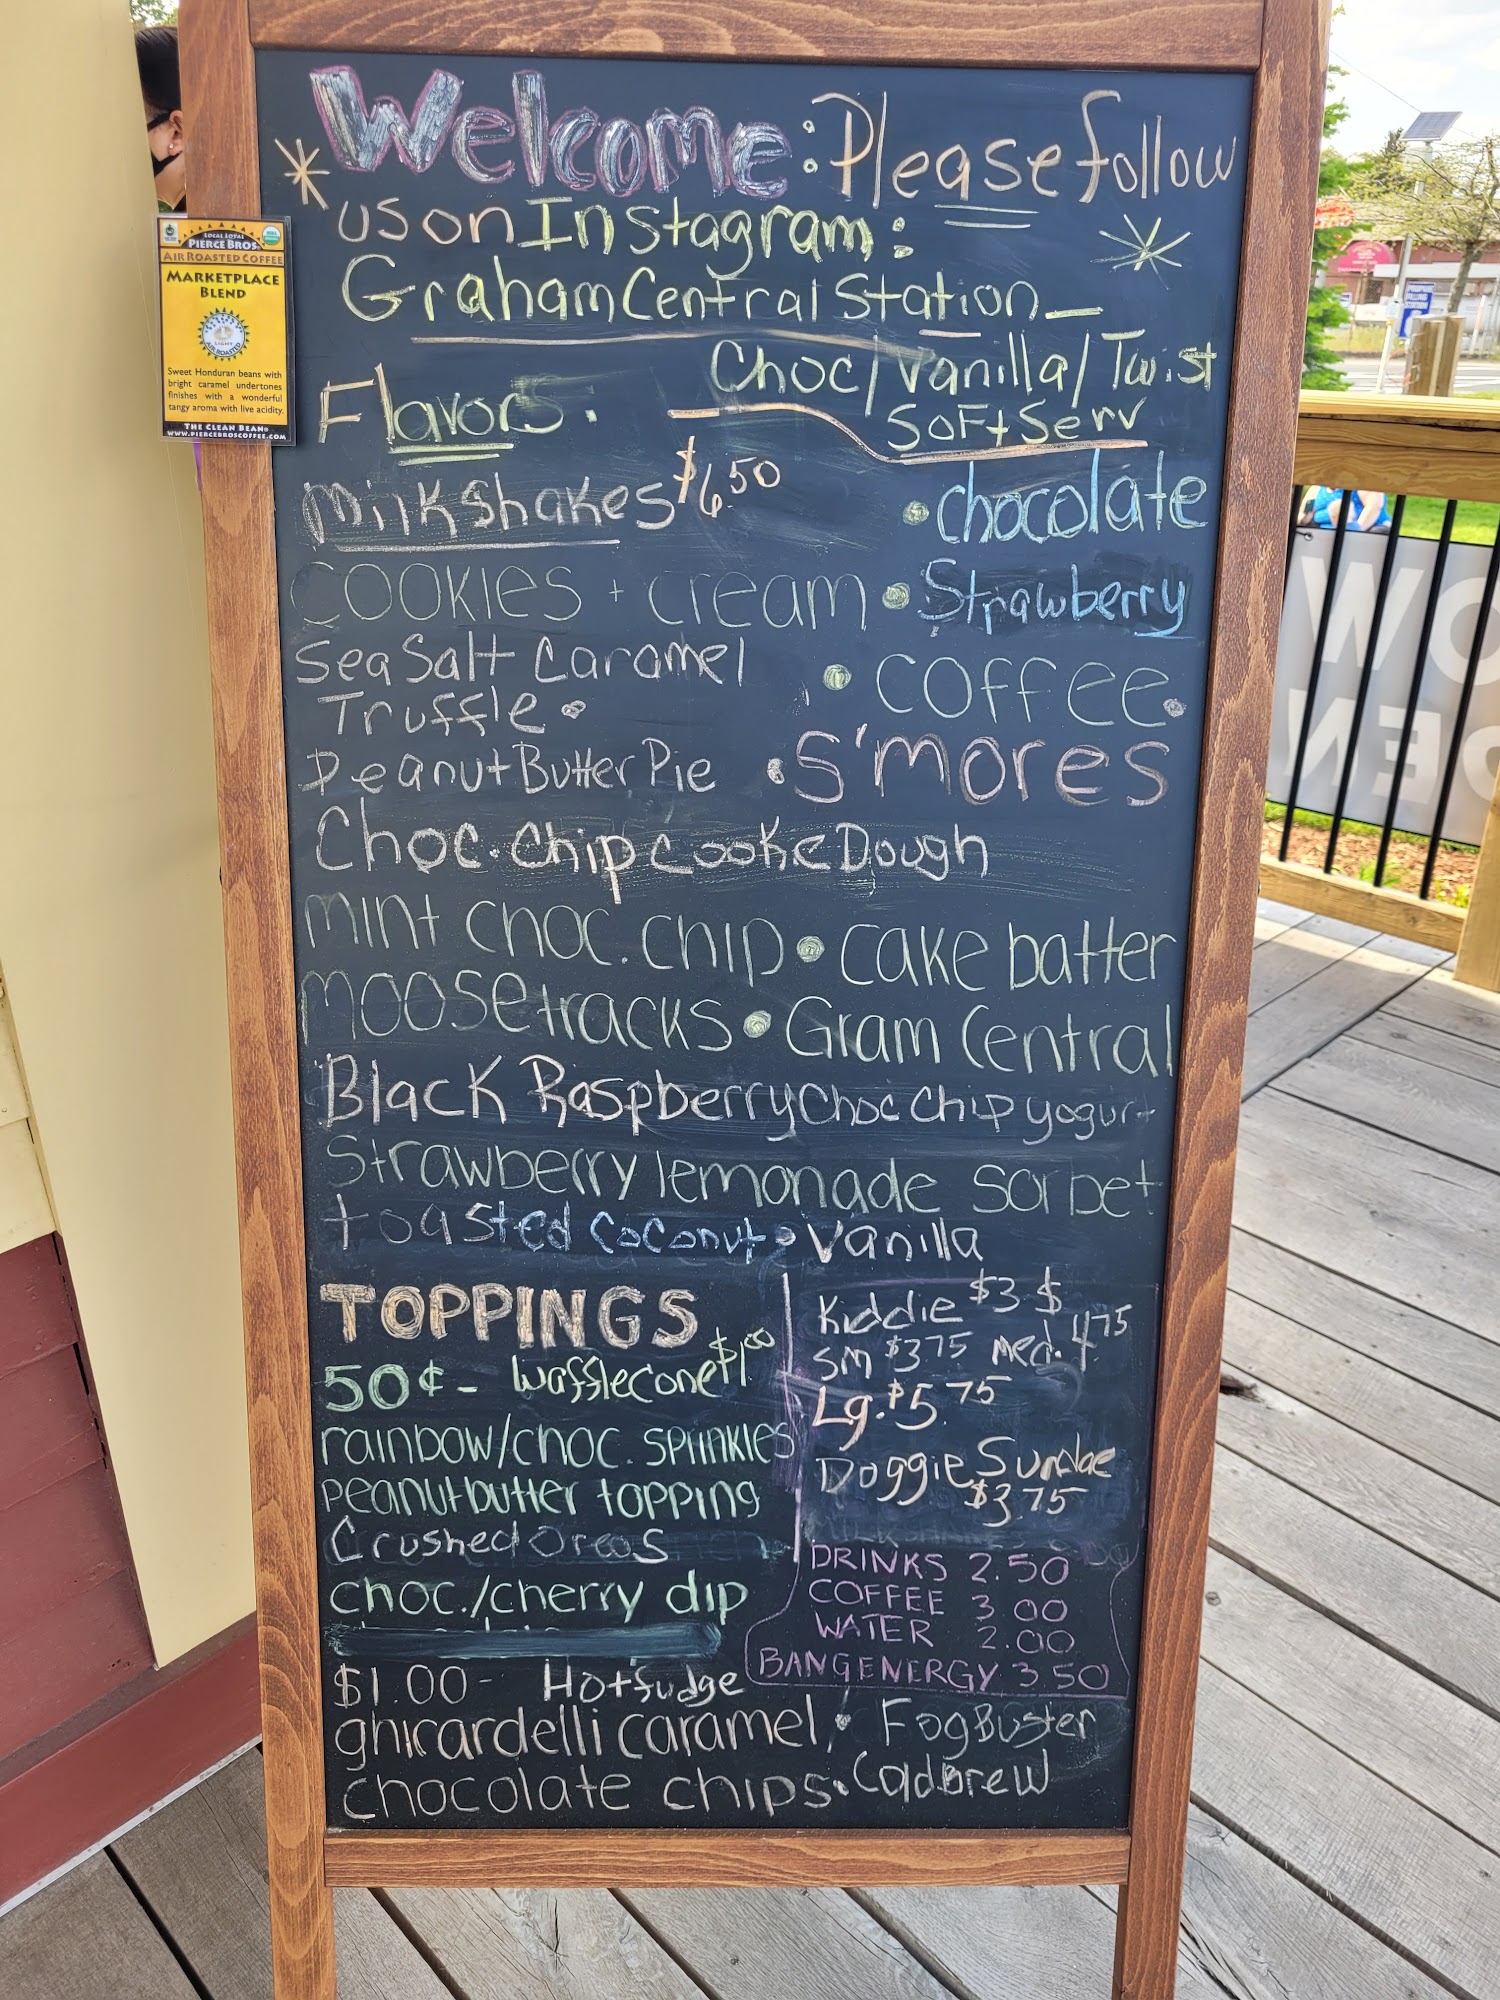 Welcome: Please follow
us on Instagram:
GrahamCentralStation_
Choc/Vanilla/Twist
Soft Serv
Flavors:
Milkshakes $6.50
• chocolate
cookies + cream • Strawberry
Sea Salt Caramel
Truffle •
• coffee •
Peanut Butter Pie • S'mores
Choc. Chip CookieDough
mint choc. chip • cake batter
moosetracks • Gram Central
Black Raspberry Choc Chip yogurt
Strawberry lemonade sorbet
toasted coconut • Vanilla
TOPPINGS
50¢ - Wafflecone $1.00
rainbow/choc. sprinkles
peanutbutter topping
Crushed Oreos
choc./cherry dip
$1.00 - Hotfudge
ghicardelli caramel • FogBuster
chocolate chips • Coldbrew
Kiddie $3 $
sm $3.75 med. 4.75
Lg. $5.75
Doggie Sundae
$3.75
DRINKS 2.50
COFFEE 3.00
WATER 2.00
BANG ENERGY 3.50
LOCAL LOYAL
PIERCE BROS.
AIR ROASTED COFFEE
MARKETPLACE
BLEND
LIGHT
AIR ROASTED
Sweet Honduran beans with
bright caramel undertones
finishes with a wonderful
tangy aroma with live acidity.
THE CLEAN BEAN®
WWW.PIERCEBROSCOFFEE.COM